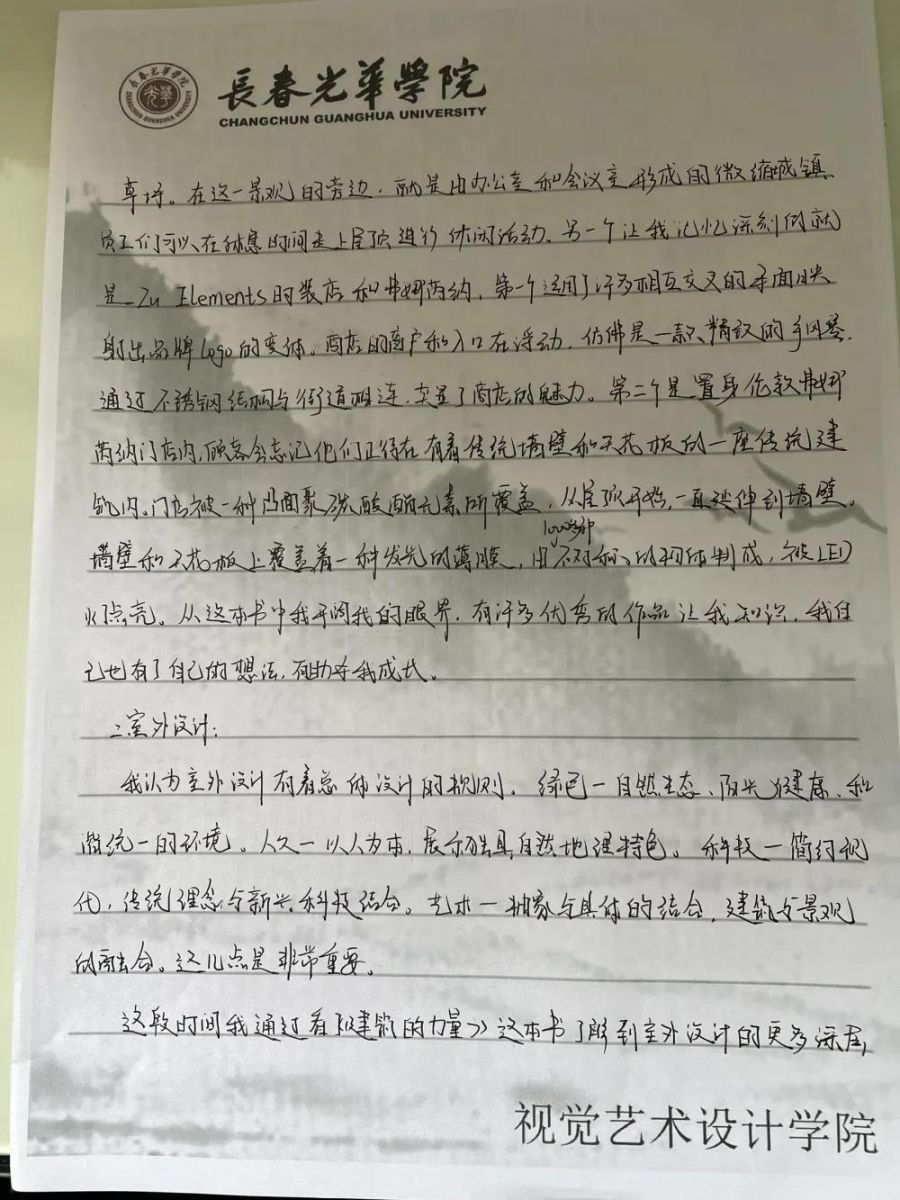 長春光華學院
CHANGCHUN GUANGHUA UNIVERSITY
草坪。在这一景观的旁边，就是由办公室和会议室形成的微缩城镇
员工们可以在休息时间走上屋顶进行休闲活动。另一个让我记忆深刻的就
是 Zu Elements时装店和弗娜芮纳，第一个运用了许多相互交叉的平面映
射出品牌logo的变体。商店的窗户和入口在浮动，仿佛是一款精致的手风琴，
通过不锈钢结构与街道相连，突显了商店的魅力。第二个是置身伦敦弗娜
芮纳门店内，顾客会忘记他们正待在有着传统墙壁和天花板的一座传统建
筑内。门店被一种凸面聚碳酸酯元素所覆盖，从屋顶开始，一直延伸到墙壁。
墙壁和天花板上覆盖着一种发光的薄膜，由1000多种不对称的物体制成，被LED
灯点亮。从这本书中我开阔我的眼界，有许多优秀的作品让我知识，我自
己也有了自己的想法，有助于我成长。
二室外设计：
我认为室外设计有着总体设计的规则。绿色一自然生态、阳光健康、和
谐统一的环境。人文一以人为本，展示独具自然地理特色。科技一简约现
代，传统理念与新兴科技结合。艺术一抽象与具体的结合，建筑与景观
的融合。这几点是非常重要。
这段时间我通过看《建筑的力量》这本书了解到室外设计的更多深层，
视觉艺术设计学院